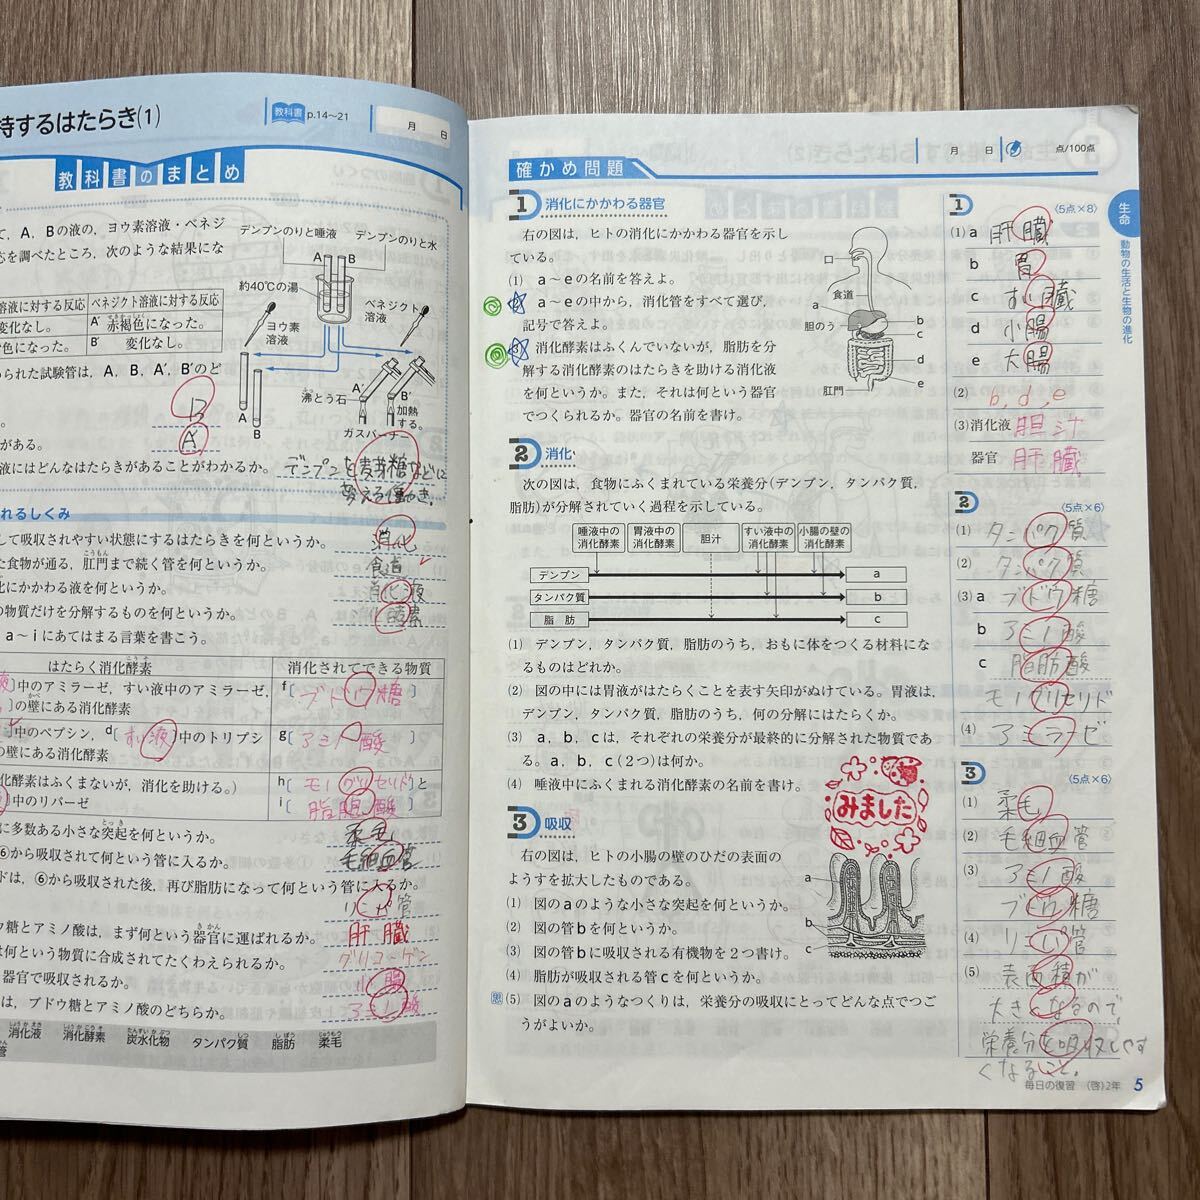 持するはたらき(1)
教科書 p.14〜21
月 日
教科書のまとめ
て，A，Bの液の，ヨウ素溶液・ベネジ
応を調べたところ，次のような結果にな
溶液に対する反応 ベネジクト溶液に対する反応
変化なし。 A′ 赤褐色になった。
色になった。 B′ 変化なし。
られた試験管は，A，B，A′，B′のど
デンプンのりと唾液 デンプンのりと水
A B
約40℃の湯
ベネジクト溶液
ヨウ素溶液
沸とう石
A′ B′
加熱する。
A
B
ガスバーナー
B
がある。 A′
液にはどんなはたらきがあることがわかるか。 デンプンを麦芽糖などに
変える働き。
れるしくみ
して吸収されやすい状態にするはたらきを何というか。 消化
た食物が通る，肛門まで続く管を何というか。 食道
化にかかわる液を何というか。 消化液
の物質だけを分解するものを何というか。 消化酵素
a〜iにあてはまる言葉を書こう。
はたらく消化酵素 消化されてできる物質
液〕中のアミラーゼ，すい液中のアミラーゼ， f〔ブドウ糖〕
〕の壁にある消化酵素
〕中のペプシン，d〔すい液〕中のトリプシ g〔アミノ酸〕
の壁にある消化酵素
化酵素はふくまないが，消化を助ける。） h〔モノグリセリド〕と
〕中のリパーゼ i〔脂肪酸〕
に多数ある小さな突起を何というか。 柔毛
⑥から吸収されて何という管に入るか。 毛細血管
ドは，⑥から吸収された後，再び脂肪になって何という管に入るか。
リンパ管
ウ糖とアミノ酸は，まず何という器官に運ばれるか。 肝臓
は何という物質に合成されてたくわえられるか。 グリコーゲン
器官で吸収されるか。 小腸
は，ブドウ糖とアミノ酸のどちらか。 アミノ酸
消化液 消化酵素 炭水化物 タンパク質 脂肪 柔毛
管
確かめ問題
月 日 点/100点
1 消化にかかわる器官
右の図は，ヒトの消化にかかわる器官を示し
ている。
(1) a〜eの名前を答えよ。
a〜eの中から，消化管をすべて選び，
記号で答えよ。
消化酵素はふくんでいないが，脂肪を分
解する消化酵素のはたらきを助ける消化液
を何というか。また，それは何という器官
でつくられるか。器官の名前を書け。
口
食道
a
胆のう
b
c
d
e
肛門
2 消化
次の図は，食物にふくまれている栄養分(デンプン，タンパク質，
脂肪)が分解されていく過程を示している。
唾液中の消化酵素 胃液中の消化酵素 胆汁 すい液中の消化酵素 小腸の壁の消化酵素
デンプン a
タンパク質 b
脂肪 c
(1) デンプン，タンパク質，脂肪のうち，おもに体をつくる材料にな
るものはどれか。
(2) 図の中には胃液がはたらくことを表す矢印がぬけている。胃液は，
デンプン，タンパク質，脂肪のうち，何の分解にはたらくか。
(3) a，b，cは，それぞれの栄養分が最終的に分解された物質であ
る。a，b，c(2つ)は何か。
(4) 唾液中にふくまれる消化酵素の名前を書け。
みました
3 吸収
右の図は，ヒトの小腸の壁のひだの表面の
ようすを拡大したものである。
(1) 図のaのような小さな突起を何というか。
(2) 図の管bを何というか。
(3) 図の管bに吸収される有機物を2つ書け。
(4) 脂肪が吸収される管cを何というか。
思 (5) 図のaのようなつくりは，栄養分の吸収にとってどんな点でつご
うがよいか。
a
b
c
1 〈5点×8〉
(1) a 肝臓
b 胃
c すい臓
d 小腸
e 大腸
(2) b，d，e
(3)消化液 胆汁
器官 肝臓
2 〈5点×6〉
(1) タンパク質
(2) タンパク質
(3) a ブドウ糖
b アミノ酸
c 脂肪酸
モノグリセリド
(4) アミラーゼ
3 〈5点×6〉
(1) 柔毛
(2) 毛細血管
(3) アミノ酸
ブドウ糖
(4) リンパ管
(5) 表面積が
大きくなるので，
栄養分を吸収しやす
くなること。
生命 動物の生活と生物の進化
毎日の復習 (啓)2年 5